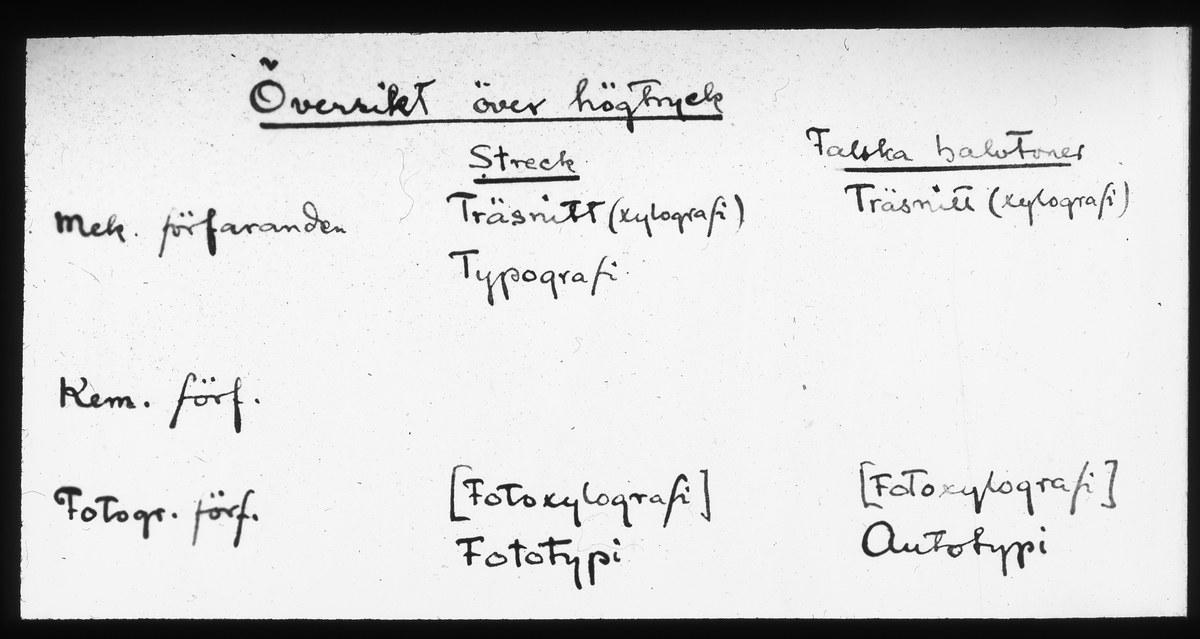 Översikt över högtryck
Streck
Falska halvtoner
Mek. förfaranden
Träsnitt (xylografi)
Träsnitt (xylografi)
Typografi
Kem. förf.
Fotogr. förf.
[Fotoxylografi]
[Fotoxylografi]
Fototypi
Autotypi